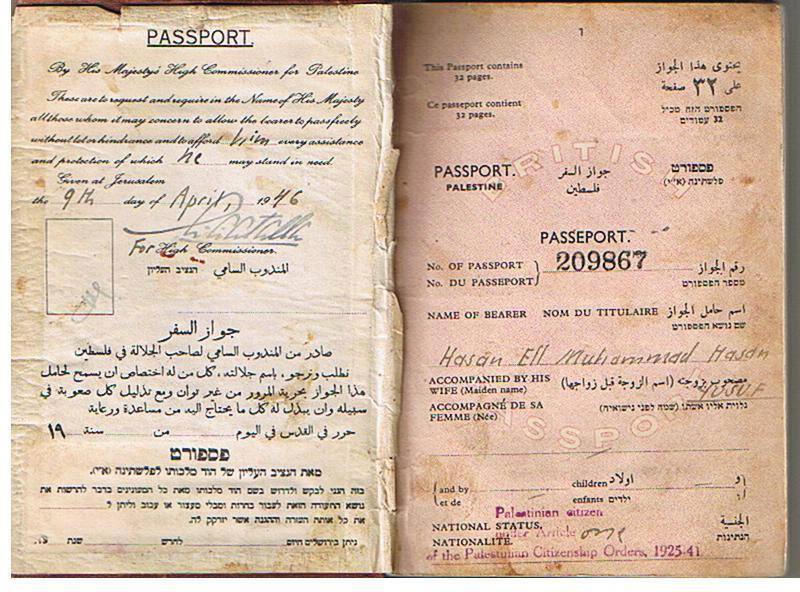 PASSPORT.
By His Majesty's High Commissioner for Palestine
These are to request and require in the Name of His Majesty
all those whom it may concern to allow the bearer to pass freely
without let or hindrance and to afford him every assistance
and protection of which he may stand in need.
Given at Jerusalem
the 9th day of April, 1946
For High Commissioner.
المندوب السامي הנציב העליון
جواز السفر
صادر من المندوب السامي لصاحب الجلالة في فلسطين
نطلب ونرجو، باسم جلالته، كل من له اختصاص ان يسمح لحامل
هذا الجواز بحرية المرور من غير توان ومع تذليل كل صعوبة في
سبيله وان يبذل له كل ما يحتاج اليه من مساعدة ورعاية
حرر في القدس في اليوم من سنة ١٩
פספורט
מאת הנציב העליון של הוד מלכותו לפלשתינה (א״י).
בזה הנני לבקש ולדרוש בשם הוד מלכותו מאת כל המעונינים בדבר להרשות את
נושא התעודה הזאת לעבור בחרות ומבלי מעצור או עכוב וליתן לו
את כל אותה העזרה וההגנה אשר יזדקק לה.
ניתן בירושלים היום לחדש שנת 19
1
This Passport contains
32 pages.
يحتوى هذا الجواز
على ٣٢ صفحة
Ce passeport contient
32 pages.
הפספורט הזה מכיל
32 עמודים
BRITISH
PASSPORT. جواز السفر פספורט
PALESTINE فلسطين פלשתינה (א״י)
PASSEPORT.
No. OF PASSPORT 209867 رقم الجواز
No. DU PASSEPORT מספר הפספורט
NAME OF BEARER NOM DU TITULAIRE اسم حامل الجواز
שם נושא הפספורט
Hasan Eff Muhammad Hasan
YUSUF
ACCOMPANIED BY HIS
WIFE (Maiden name)
مصحوب بزوجته (اسم الزوجة قبل زواجها)
ACCOMPAGNÉ DE SA
FEMME (Née)
נלוית אליו אשתו (שמה לפני נישואיה)
PASSPORT
and by children اولاد و
et de enfants ילדים
Palestinian citizen
NATIONAL STATUS. الجنسية
under Article one
NATIONALITÉ. הנתינות
of the Palestinian Citizenship Orders, 1925-41